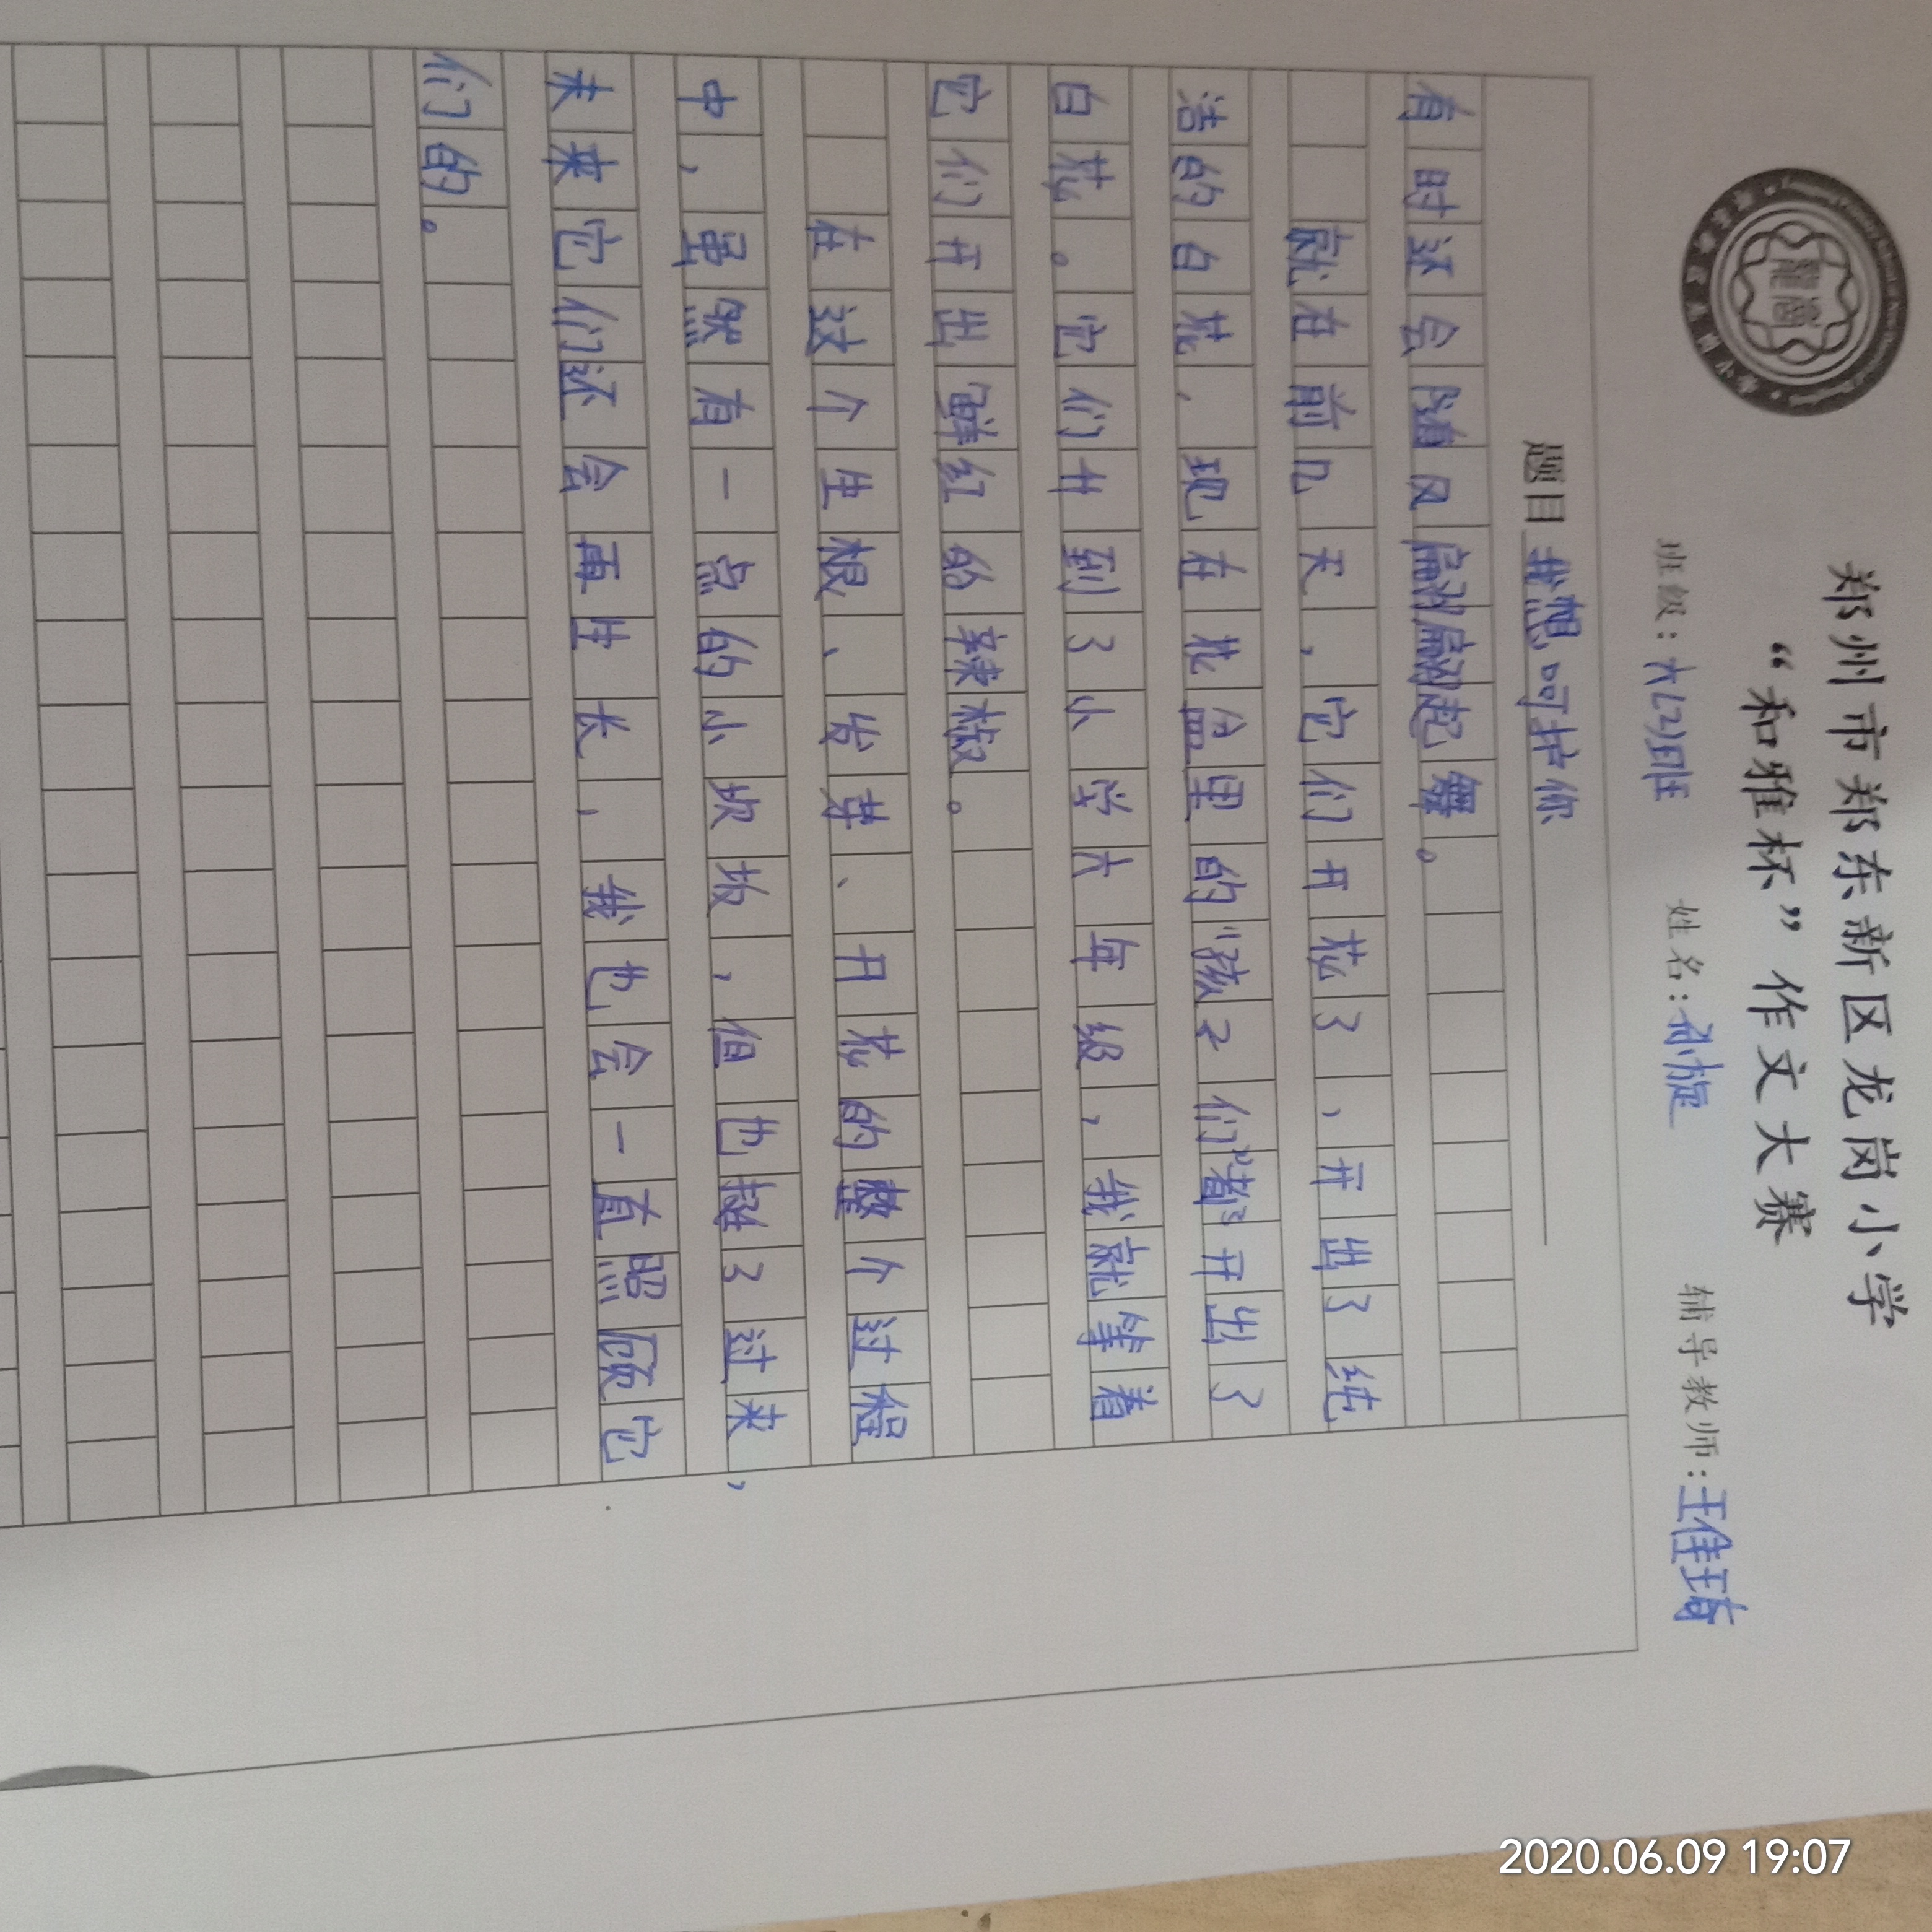 郑州市郑东新区龙岗小学
“和雅杯”作文大赛
班级：六(2)班 姓名：孙旋 辅导教师：王佳琦
题目 我想呵护你
有时还会随风翩翩起舞。
就在前几天，它们开花了，开出了纯
洁的白花，现在花盆里的“孩子们”都开出了
白花。它们升到了小学六年级，我就等着
它们开出鲜红的辣椒。
在这个生根、发芽、开花的整个过程
中，虽然有一点的小坎坡，但也挺了过来，
未来它们还会再生长，我也会一直照顾它
们的。
龍崗
2020.06.09 19:07